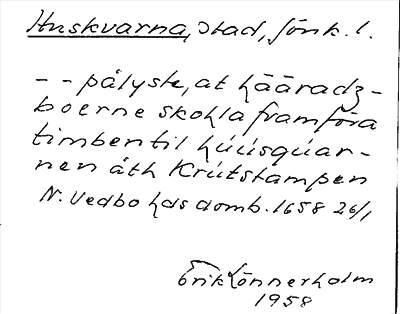 Huskvarna, stad, Jönk. l.
-- pålyste, at hääradz-
boerne skohla framföra
timben til húúsqúar-
nen åth Krútstampen
N. Vedbo hds domb. 1658 26/1
Erik Lönnerholm
1958